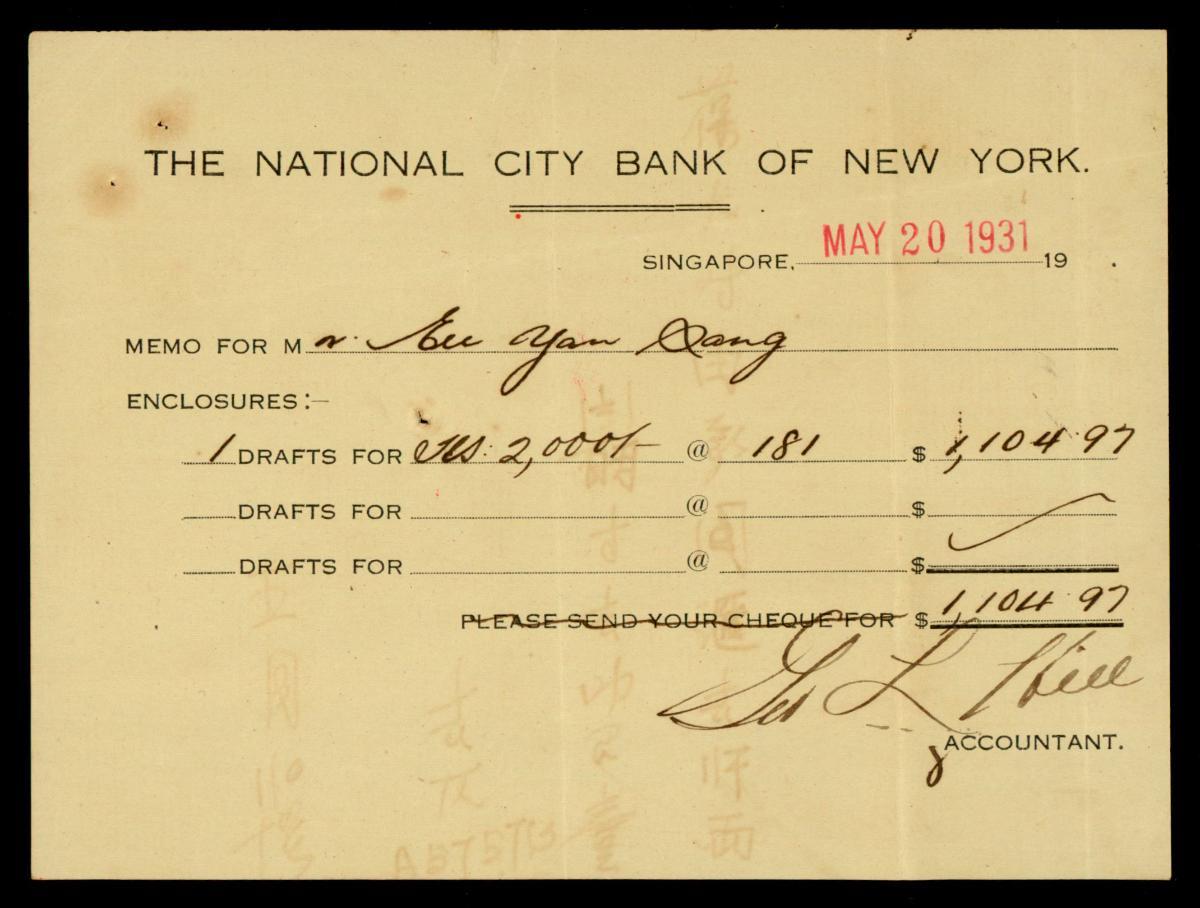 THE NATIONAL CITY BANK OF NEW YORK.
SINGAPORE, MAY 20 1931 19 .
MEMO FOR Mr. Eu Yan Sang
ENCLOSURES:—
1 DRAFTS FOR 2,000/- @ 181 $ 1,104.97
DRAFTS FOR @ $
DRAFTS FOR @ $
PLEASE SEND YOUR CHEQUE FOR $ 1,104.97
Geo L Hill
ACCOUNTANT.